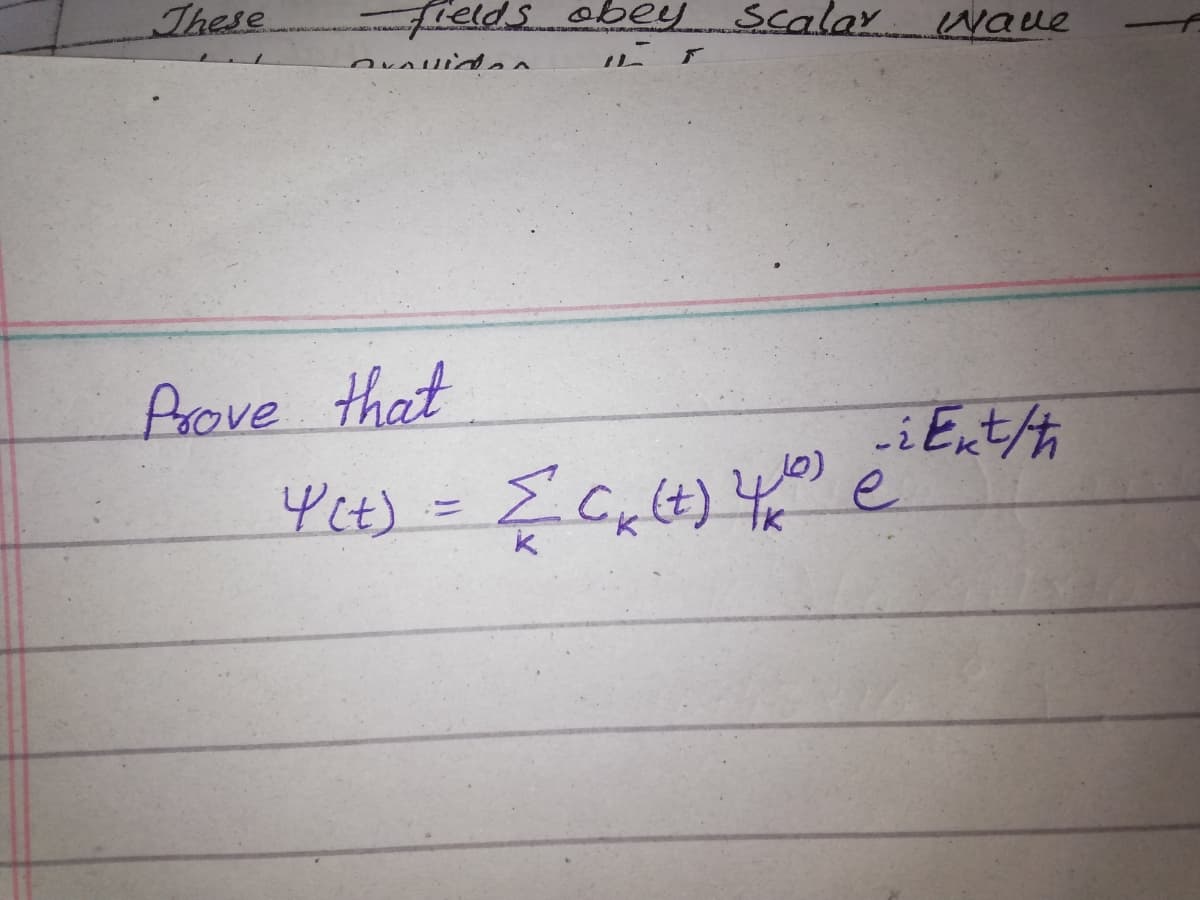 These fields obey scalar wave
Prove that
Ψ(t) = Σ_k C_k(t) Ψ_k^(0) e^-iE_kt/ħ